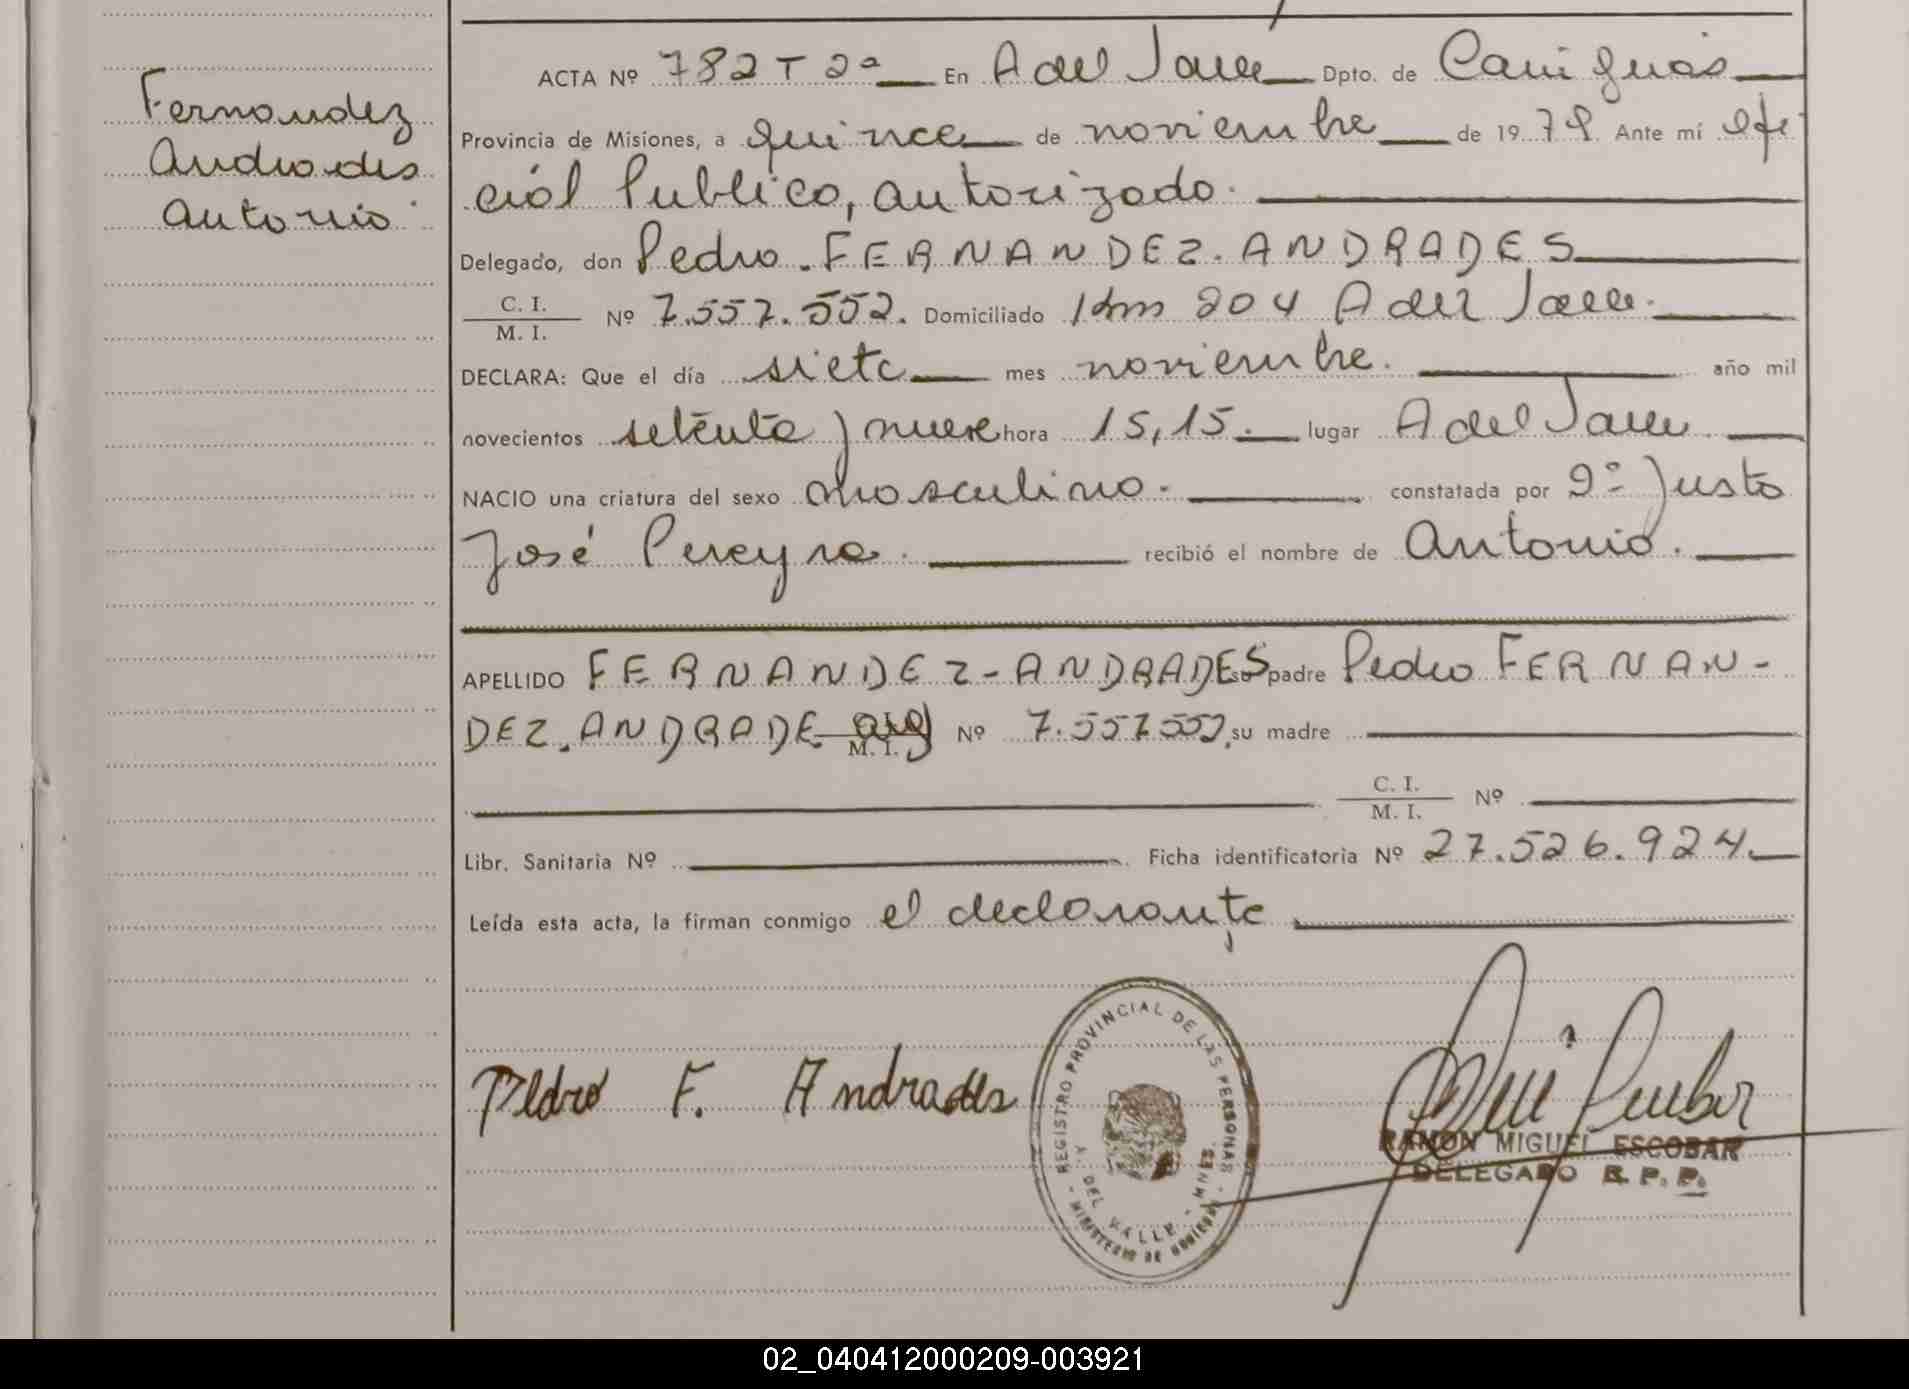 Fernandez
Andrades
Antonio
ACTA Nº 782 T 2º En A del Valle Dpto. de Cainguás
Provincia de Misiones, a quince de noviembre de 1979 Ante mí Ofi
cial Publico, autorizado.
Delegado, don Pedro FERNANDEZ ANDRADES
C. I.
M. I. Nº 7.557.552. Domiciliado Km 204 A del Valle.
DECLARA: Que el día siete mes noviembre. año mil
novecientos setenta y nueve hora 15,15. lugar A del Valle
NACIO una criatura del sexo masculino. constatada por Justo
José Pereyra. recibió el nombre de Antonio.
APELLIDO FERNANDEZ-ANDRADES su padre Pedro FERNAN-
DEZ. ANDRADE arg M. I. Nº 7.557552, su madre
C. I.
M. I. Nº
Libr. Sanitaria Nº Ficha identificatoria Nº 27.526.924.
Leída esta acta, la firman conmigo el declarante
Pedro F. Andrades
REGISTRO PROVINCIAL DE LAS PERSONAS
A. DEL VALLE - MNES.
MINISTERIO DE GOBIERNO
RAMON MIGUEL ESCOBAR
DELEGADO R. P. P.
02_040412000209-003921